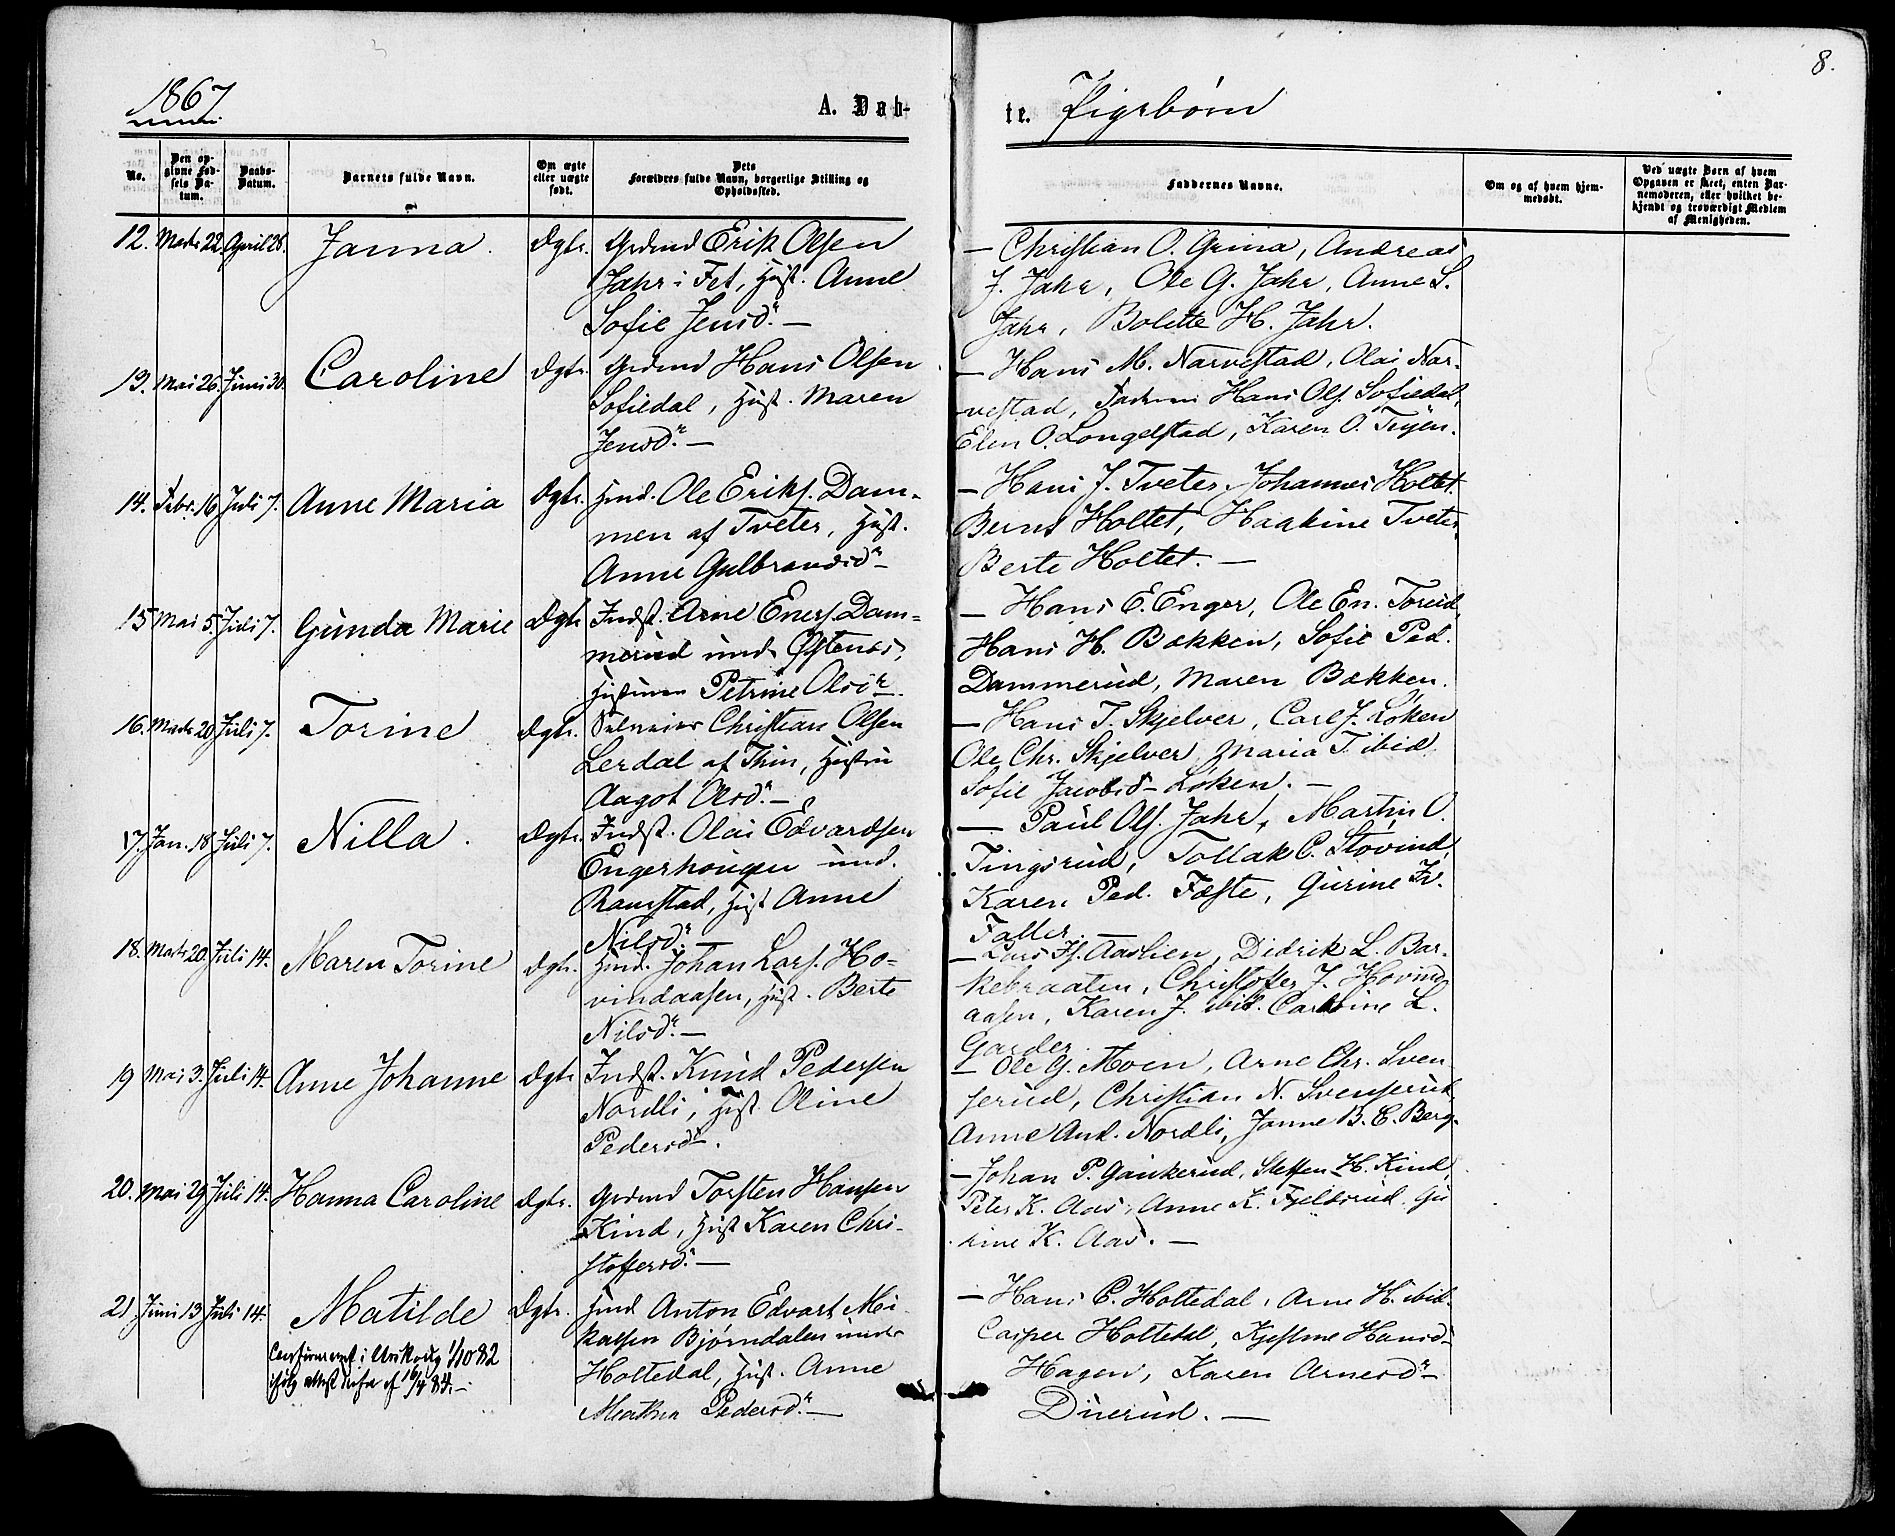 8.
1867
A. Døb-
te. Pigebørn
No.
Den op-
givne Fød-
sels Da-
tum.
Daabs-
Datum.
Barnets fulde Navn.
Om ægte
eller uægte
født.
Dets
Forældres fulde Navn, borgerlige Stilling og
Opholdssted.
Faddernes Navne.
Om og af hvem hjem-
medøbt.
Ved uægte Børn af hvem
Opgaven er skeet, enten Bar-
nemoderen, eller hvilket be-
kjendt og troværdigt Medlem
af Menigheden.
12. Marts 22. April 28. Janna. Dgtr. Grdmd Erik Olsen
Jahr i Fet, Hust. Anne
Sofie Jensd. —
— Christian O. Grina, Andreas
J. Jahr, Ole G. Jahr, Anne S.
Jahr, Bolette H. Jahr.
13. Mai 26. Juni 30. Caroline Dgtr. Grdmd Hans Olsen
Sofiedal, Hust. Maren
Jensd. —
— Hans M. Narvestad, Olai Nar-
vestad, Hans Ols. Sofiedal,
Elen O. Longelstad, Karen O. Tujen.
14. Febr. 16 Juli 7. Anne Maria Dgtr. Hmd. Ole Eriks. Dam-
men af Tveter, Hust.
Anne Gulbrandsd —
— Hans J. Tveter, Johannes Holtet
Bernt Holtet, Haakine Tveter,
Berte Holtet. —
15 Mai 5. Juli 7. Gunda Marie Dgtr Indst. Arne Eners. Dam-
merud und. Østenes,
Hustruen Petrine Olsd.
— Hans E. Enger, Ole En. Torud,
Hans H. Bakken, Sofie Ped.
Dammerud, Maren Bakken.
16. Marts 20 Juli 7. Torine Dgtr. Selveier Christian Olsen
Lerdal af Thin, Hustru
Aagot Olsd. —
— Hans T. Skjelver, Carl J. Løken
Ole Chr. Skjelver, Maria T. ibid.
Sofie Jacobsd Løken. —
17. Jan. 18 Juli 7. Nilla. Dgtr. Indst. Olai Edvardsen
Engerhougen und.
Ramstad, Hust Anne
Nilsd. —
— Paul Ols. Jahr, Martin O.
Tingsrud, Tollak C. Støvind,
Karen Ped. Fæste, Gurine Fr.
Faller. —
18. Marts 20. Juli 14. Maren Torine Dgtr. Hmd. Johan Lars. Ho-
vindaasen, Hust. Berte
Nilsd. —
— Lars H. Aaslien, Didrik L. Bar-
kebraaten, Christoffer J. Hovind-
aasen, Karen J. ibid. Caroline L.
Garder.
19 Mai 3. Juli 14. Anne Johanne Dgtr Indst. Knud Pedersen
Nordli, Hust Oline
Pedersd.
— Ole G. Moen, Arne Chr. Sven
serud, Christian N. Svenserud,
Anne And. Nordli, Janne B. C. Berg.
20. Mai 29 Juli 14. Hanna Caroline Dgtr. Grdmd Torsten Hansen
Kind, Hust Karen Chri-
stoffersd. —
— Johan P. Gaukerud, Steffen H. Kind,
Peter K. Aas, Anne K. Fjeldsrud, Gu
rine K. Aas. —
21 Juni 13 Juli 14. Matilde Dgtr. Hmd Anton Edvart Mi-
kalsen Bjørndalen under
Holtedal, Hust. Anne
Pedersd. —
— Hans C. Holtedal, Arne H. ibid.
Casper Holtedal, Kjestine Hansd
Hagen, Karen Arnesd —
Duerud. —
Confirmeret i Urskoug 1/10 82
ifølg attest derfra af 16/4 84. —